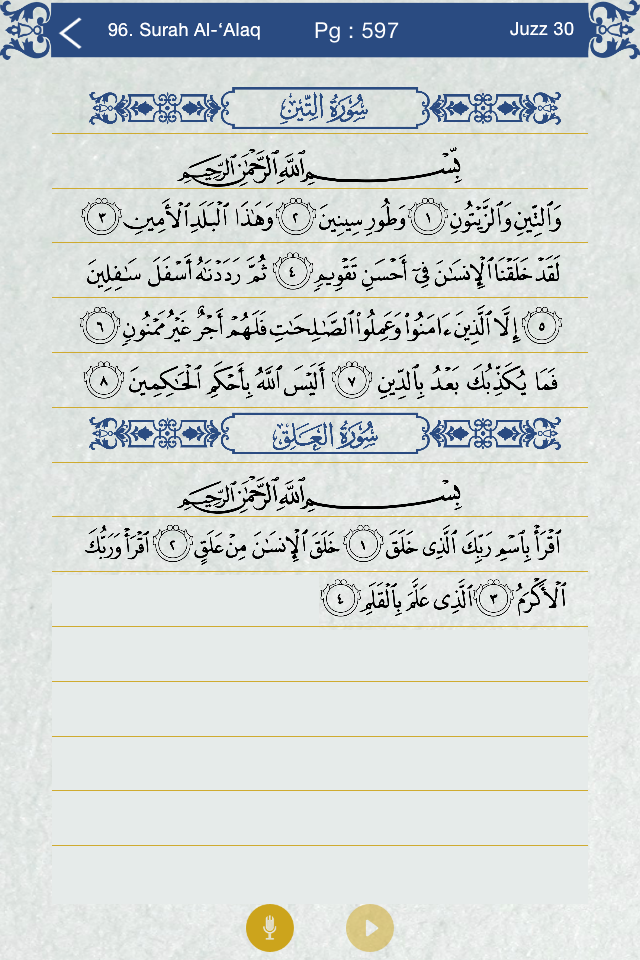 96. Surah Al-‘Alaq Pg : 597 Juzz 30
سُورَةُ التِّينِ
بِّسْمِ اللَّهِ الرَّحْمَٰنِ الرَّحِيمِ
وَالتِّينِ وَالزَّيْتُونِ ١ وَطُورِ سِينِينَ ٢ وَهَٰذَا الْبَلَدِ الْأَمِينِ ٣
لَقَدْ خَلَقْنَا الْإِنسَٰنَ فِىٓ أَحْسَنِ تَقْوِيمٍ ٤ ثُمَّ رَدَدْنَٰهُ أَسْفَلَ سَٰفِلِينَ
٥ إِلَّا الَّذِينَ ءَامَنُوا۟ وَعَمِلُوا۟ الصَّٰلِحَٰتِ فَلَهُمْ أَجْرٌ غَيْرُ مَمْنُونٍ ٦
فَمَا يُكَذِّبُكَ بَعْدُ بِالدِّينِ ٧ أَلَيْسَ اللَّهُ بِأَحْكَمِ الْحَٰكِمِينَ ٨
سُورَةُ الْعَلَقِ
بِسْمِ اللَّهِ الرَّحْمَٰنِ الرَّحِيمِ
اقْرَأْ بِاسْمِ رَبِّكَ الَّذِى خَلَقَ ١ خَلَقَ الْإِنسَٰنَ مِنْ عَلَقٍ ٢ اقْرَأْ وَرَبُّكَ
الْأَكْرَمُ ٣ الَّذِى عَلَّمَ بِالْقَلَمِ ٤